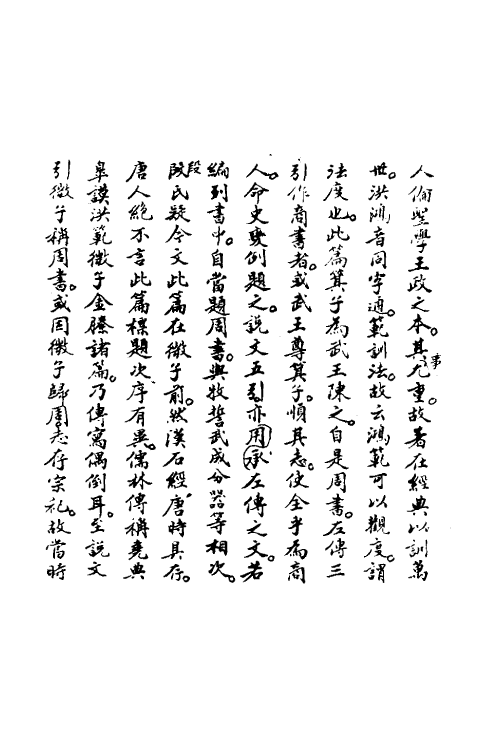 人倫聖學王政之本。其事尤重。故著在經典以訓萬
世。洪鴻音同字通。範訓法。故云鴻範可以觀度。謂
法度也。此篇箕子為武王陳之。自是周書。左傳三
引作商書者。或武王尊箕子。順其志。使全乎為商
人。命史雙例題之。說文五引亦用承左傳之文。若
編列書中。自當題周書。與牧誓武成分器等相次。
段氏疑今文此篇在微子前。然漢石經唐時具存。
唐人絕不言此篇標題次序有異。儒林傳稱堯典
皋謨洪範微子金縢諸篇。乃傳寫偶倒耳。至說文
引微子稱周書。或因微子歸周志存宗礼。故當時